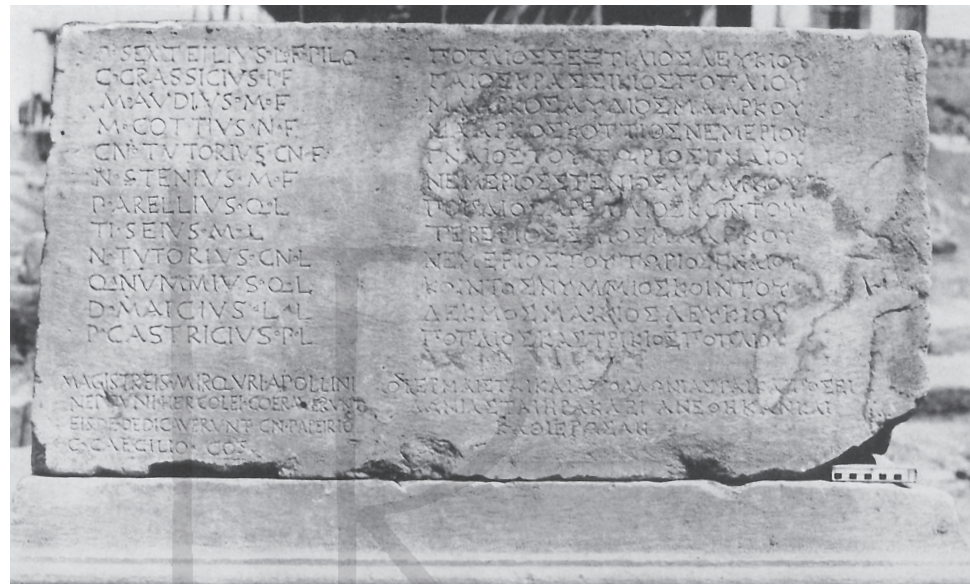 P·SEXTEILIVS·L·F·PILO
C·CRASSICIVS·P·F
M·AVDIVS·M·F
M·COTTIVS·N·F
CN·TVTORIVS·CN·F
N·STENIVS·M·F
P·ARELLIVS·Q·L
TI·SEIVS·M·L
N·TVTORIVS·CN·L
Q·NVMMIVS·Q·L
D·MAICIVS·L·L
P·CASTRICIVS·P·L
MAGISTREIS·MIRQVRI·APOLLINI
NEPTVNI·HERCOLEI·COERAVERVNT
EISDE·DEDICAVERVNT·CN·PAPEIRIO
C·CAECILIO·COS
ΠΟΠΛΙΟΣΣΕΞΤΙΛΙΟΣΛΕΥΚΙΟΥ
ΓΑΙΟΣΚΡΑΣΣΙΚΙΟΣΠΟΠΛΙΟΥ
ΜΑΑΡΚΟΣΑΥΔΙΟΣΜΑΑΡΚΟΥ
ΜΑΑΡΚΟΣΚΟΤΤΙΟΣΝΕΜΕΡΙΟΥ
ΓΝΑΙΟΣΤΟΥΤΩΡΙΟΣΓΝΑΙΟΥ
ΝΕΜΕΡΙΟΣΣΤΕΝΙΟΣΜΑΑΡΚΟΥ
ΠΟΠΛΙΟΣΑΡΕΛΛΙΟΣΚΟΙΝΤΟΥ
ΤΕΒΕΡΙΟΣΣΗΙΟΣΜΑΑΡΚΟΥ
ΝΕΜΕΡΙΟΣΤΟΥΤΩΡΙΟΣΓΝΑΙΟΥ
ΚΟΙΝΤΟΣΝΥΜΜΙΟΣΚΟΙΝΤΟΥ
ΔΕΚΜΟΣΜΑΙΚΙΟΣΛΕΥΚΙΟΥ
ΠΟΠΛΙΟΣΚΑΣΤΡΙΚΙΟΣΠΟΠΛΙΟΥ
ΟΙΕΡΜΑΙΣΤΑΙΚΑΙΑΠΟΛΛΩΝΙΑΣΤΑΙΚΑΙΠΟΣΕΙ
ΔΩΝΙΑΣΤΑΙΗΡΑΚΛΕΙ ΑΝΕΘΗΚΑΝΚΑΙ
ΚΑΘΙΕΡΩΣΑΝ